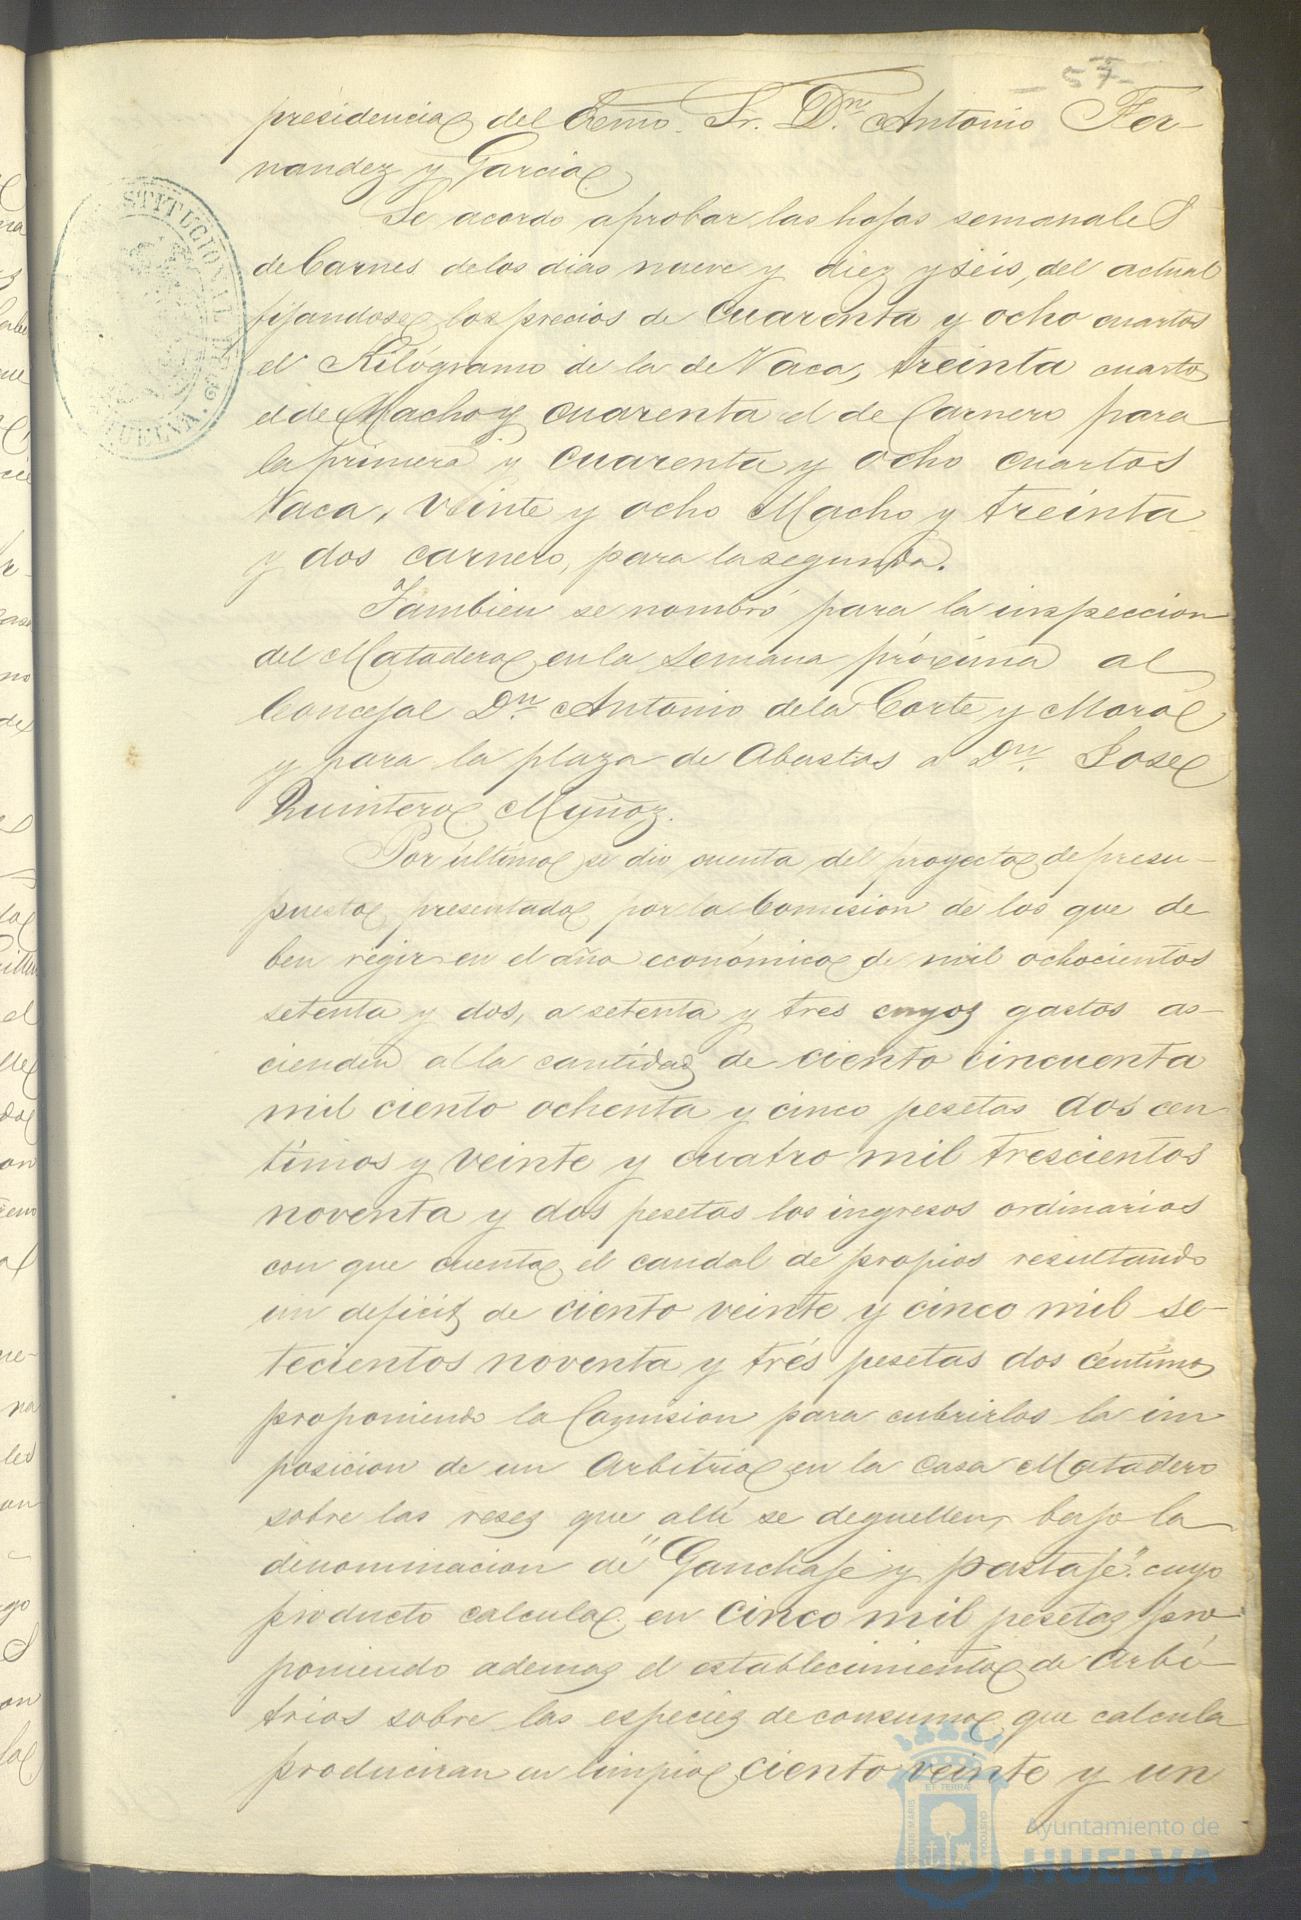 57
presidencia del Excmo. Sr. Dn. Antonio Fer-
nandez y Garcia
Se acordo aprobar las hojas semanales
de Carnes de los dias nueve y diez y seis, del actual
fijandose los precios de cuarenta y ocho cuartos
el Kilógramo de la de Vaca, treinta cuartos
el de Macho y cuarenta el de Carnero para
la primera y cuarenta y ocho cuartos
Vaca, veinte y ocho Macho y treinta
y dos carnero, para la segunda.
Tambien se nombró para la inspeccion
del Matadero en la semana próxima al
Concejal Dn. Antonio de la Corte y Mora
y para la plaza de Abastos a Dn. Jose
Quintero Muñoz.
Por último se dio cuenta del proyecto de presu-
puesto presentado por la Comision de los que de
ben regir en el año económico de mil ochocientos
setenta y dos, a setenta y tres cuyos gastos as-
cienden a la cantidad de ciento cincuenta
mil ciento ochenta y cinco pesetas dos cen
timos y veinte y cuatro mil trescientos
noventa y dos pesetas los ingresos ordinarios
con que cuenta el caudal de propios resultando
un deficit de ciento veinte y cinco mil se-
tecientos noventa y trés pesetas dos céntimos
proponiendo la Comision para cubrirlos la im
posicion de un Arbitrio en la Casa Matadero
sobre las reses que allí se deguellen, bajo la
denominacion de "Ganchaje y pastaje" cuyo
producto calcula en cinco mil pesetas pro
poniendo ademas el establecimiento de Arbi-
trios sobre las especies de consumo que calcula
produciran en limpio ciento veinte y un
Ayuntamiento de
HUELVA